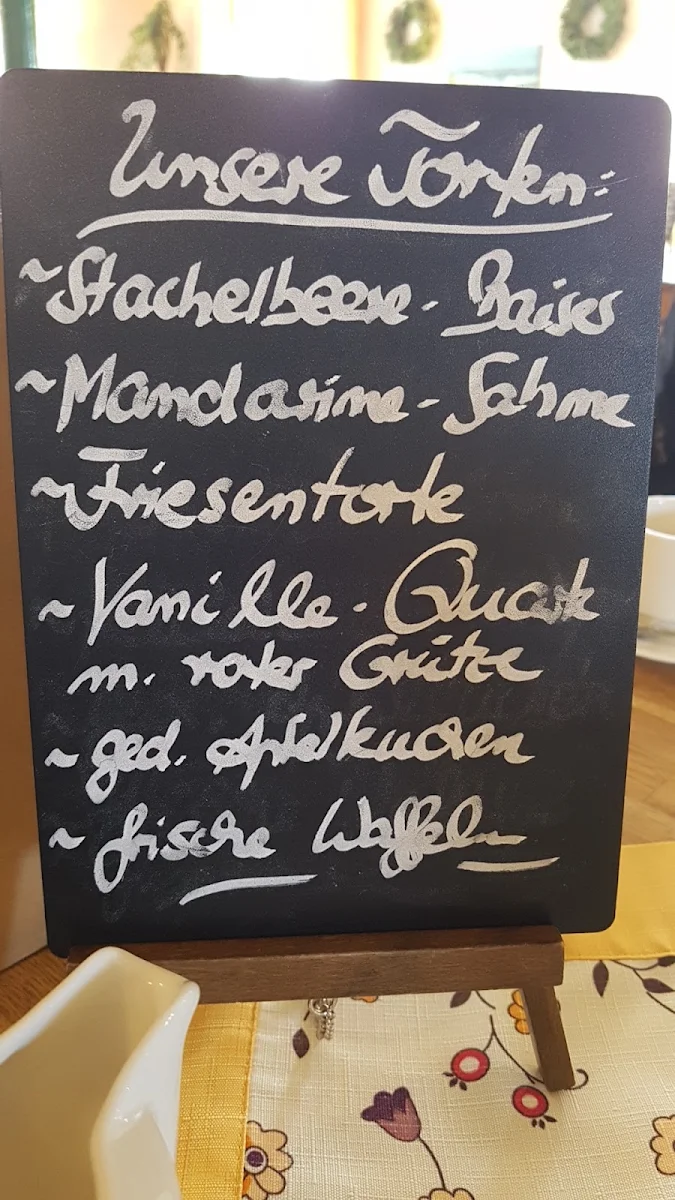 Unsere Torten:
~Stachelbeere-Baiser
~Mandarine-Sahne
~Friesentorte
~Vanille-Quark
m. roter Grütze
~ged. Apfelkuchen
~frische Waffeln